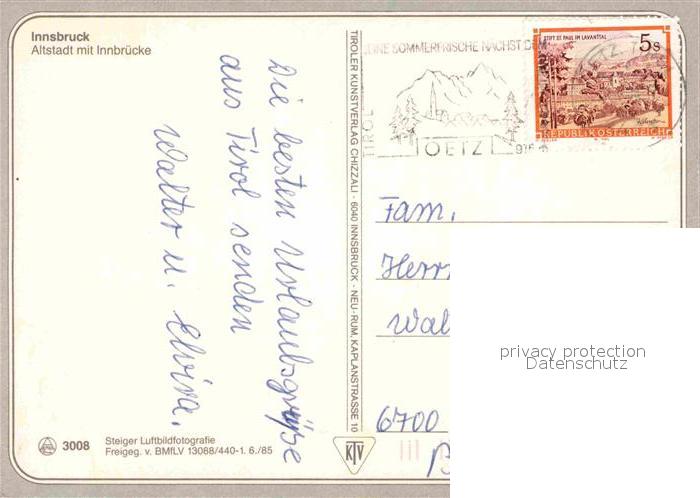 Innsbruck
Altstadt mit Innbrücke
Die besten Urlaubsgrüße
aus Tirol senden
Walter u. Elvira.
3008
Steiger Luftbildfotografie
Freigeg. v. BMfLV 13088/440-1. 6./85
TIROLER KUNSTVERLAG CHIZZALI · 6040 INNSBRUCK - NEU-RUM, KAPLANSTRASSE 10
KTV
SOMMERFRISCHE NÄCHST
TIROL
OETZ
STIFT ST. PAUL IM LAVANTTAL
5s
REPUBLIK ÖSTERREICH
Fam.
6700
privacy protection
Datenschutz